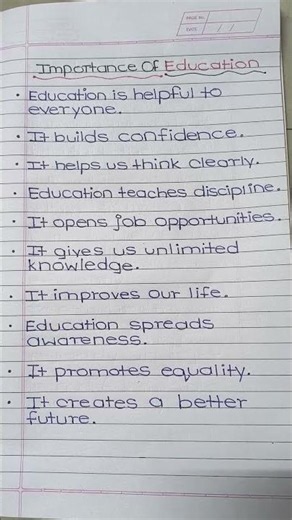 PAGE No.
DATE / /
Importance Of Education
• Education is helpful to
everyone.
• It builds confidence.
• It helps us think clearly.
• Education teaches discipline.
• It opens job opportunities.
• It gives us unlimited
knowledge.
• It improves our life.
• Education spreads
awareness.
• It promotes equality.
• It creates a better
future.